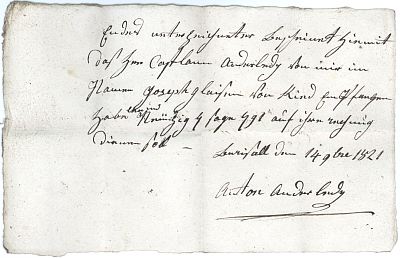 Endes unterzeichneter bescheinet hiemit
daß Herr Caplann Anderledy von mir im
Namen Joseph glaisen von Ried Empfangen
habe Neünzig 9 sage 99
auf ihre rechnig
dienen soll –
den 14 9bre 1821
Anton Anderledy